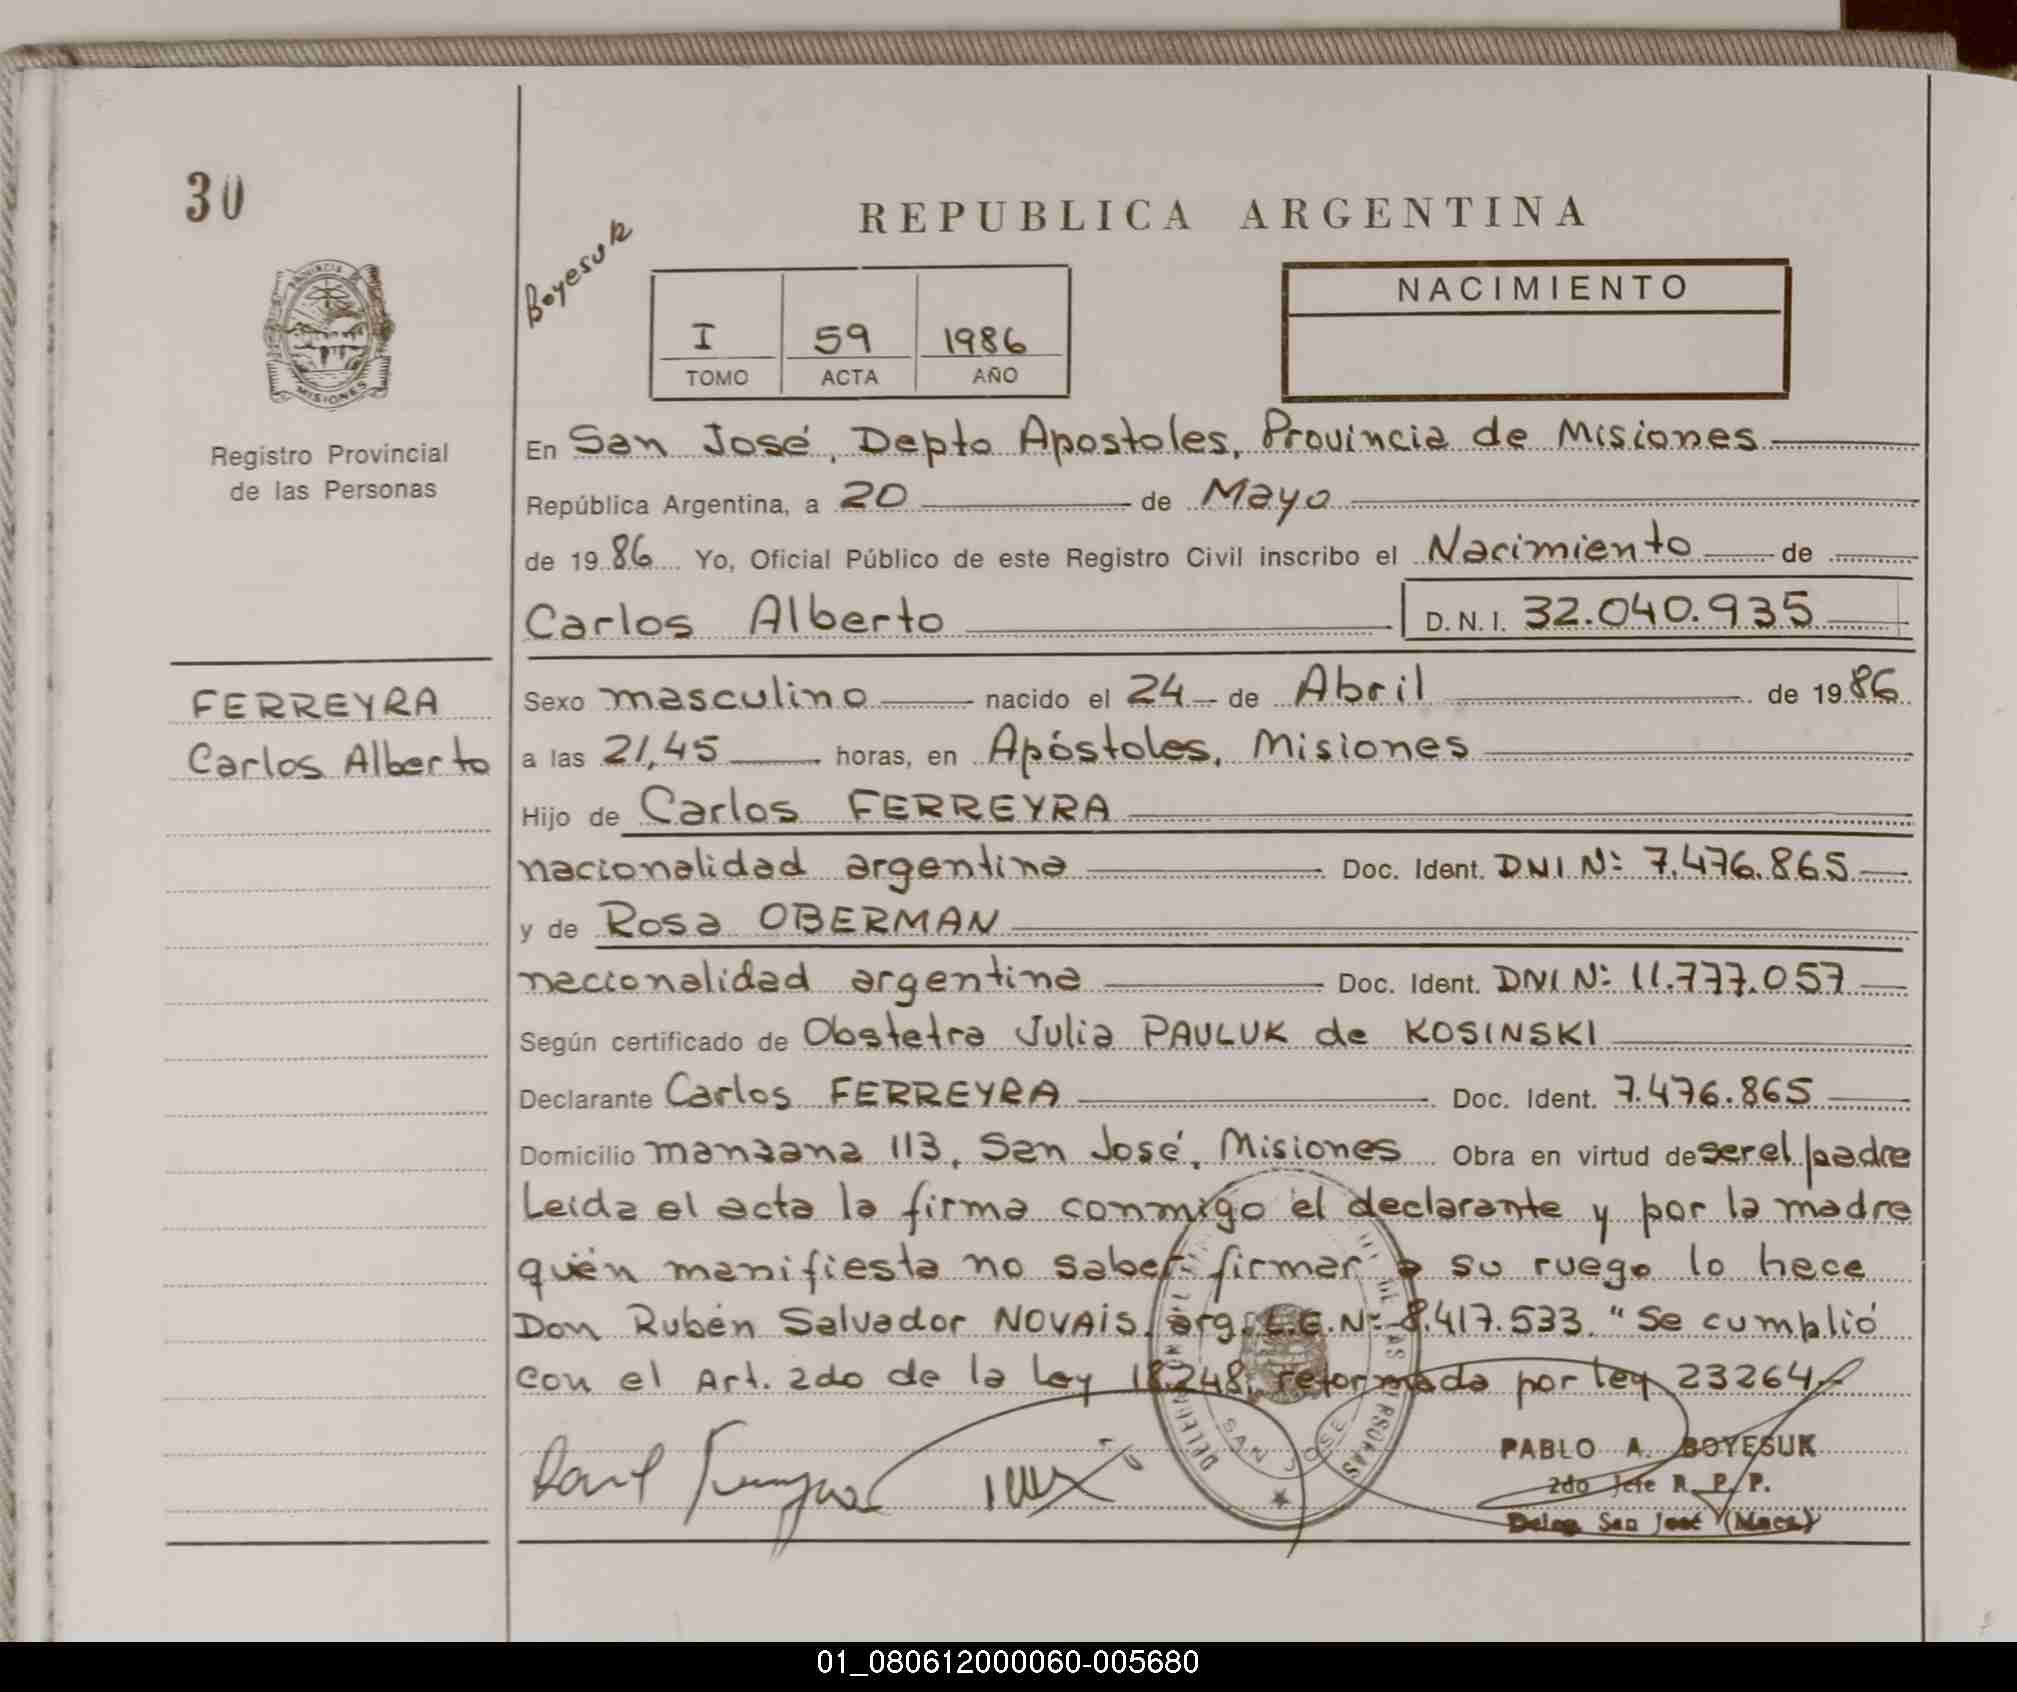 30
Boyesuk
REPUBLICA ARGENTINA
PROVINCIA
MISIONES
I 59 1986
TOMO ACTA AÑO
NACIMIENTO
Registro Provincial
de las Personas
FERREYRA
Carlos Alberto
En San José, Depto Apostoles, Provincia de Misiones
República Argentina, a 20 de Mayo
de 1986 Yo, Oficial Público de este Registro Civil inscribo el Nacimiento de
Carlos Alberto D.N.I. 32.040.935
Sexo masculino nacido el 24 de Abril de 1986
a las 21,45 horas, en Apóstoles, Misiones
Hijo de Carlos FERREYRA
nacionalidad argentina Doc. Ident. DNI Nº 7.476.865
y de Rosa OBERMAN
nacionalidad argentina Doc. Ident. DNI Nº 11.777.057
Según certificado de Obstetra Julia PAULUK de KOSINSKI
Declarante Carlos FERREYRA Doc. Ident. 7.476.865
Domicilio manzana 113, San José, Misiones Obra en virtud de ser el padre
Leída el acta la firma conmigo el declarante y por la madre
quién manifiesta no saber firmar a su ruego lo hace
Don Rubén Salvador NOVAIS, arg. L.E. Nº 8.417.533. "Se cumplió
con el Art. 2do de la ley 18.248, reformada por ley 23264.-
SAN JOSE
PABLO A. BOYESUK
2do Jefe R. P. P.
Deleg San José (Mnes)
01_080612000060-005680